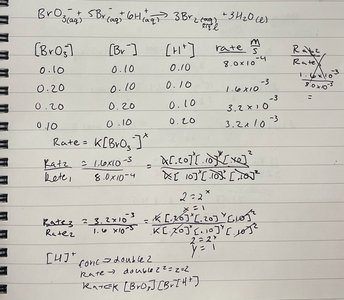 BrO₃⁻(aq) + 5Br⁻(aq) + 6H⁺(aq) → 3Br₂(aq) + 3H₂O(l)
[BrO₃⁻] [Br⁻] [H⁺] rate M/s
0.10 0.10 0.10 8.0×10⁻⁴
0.20 0.10 0.10 1.6×10⁻³
0.20 0.20 0.10 3.2×10⁻³
0.10 0.10 0.20 3.2×10⁻³
Rate2
Rate
1.6×10⁻³
8.0×10⁻³
=
Rate = K[BrO₃⁻]ˣ
Rat2 / Rate1 = 1.6×10⁻³ / 8.0×10⁻⁴ = K[.20]ˣ[.10]ʸ[.10]ᶻ / K[.10]ˣ[.10]ʸ[.10]ᶻ
2 = 2ˣ
x = 1
Rate3 / Rate2 = 3.2×10⁻³ / 1.6×10⁻³ = K[.20]ˣ[.20]ʸ[.10]ᶻ / K[.20]ˣ[.10]ʸ[.10]ᶻ
2 = 2ʸ
y = 1
[H]⁺ conc → double 2
Rate → double 2² = z = 2
[BrO₃][Br][H⁺]